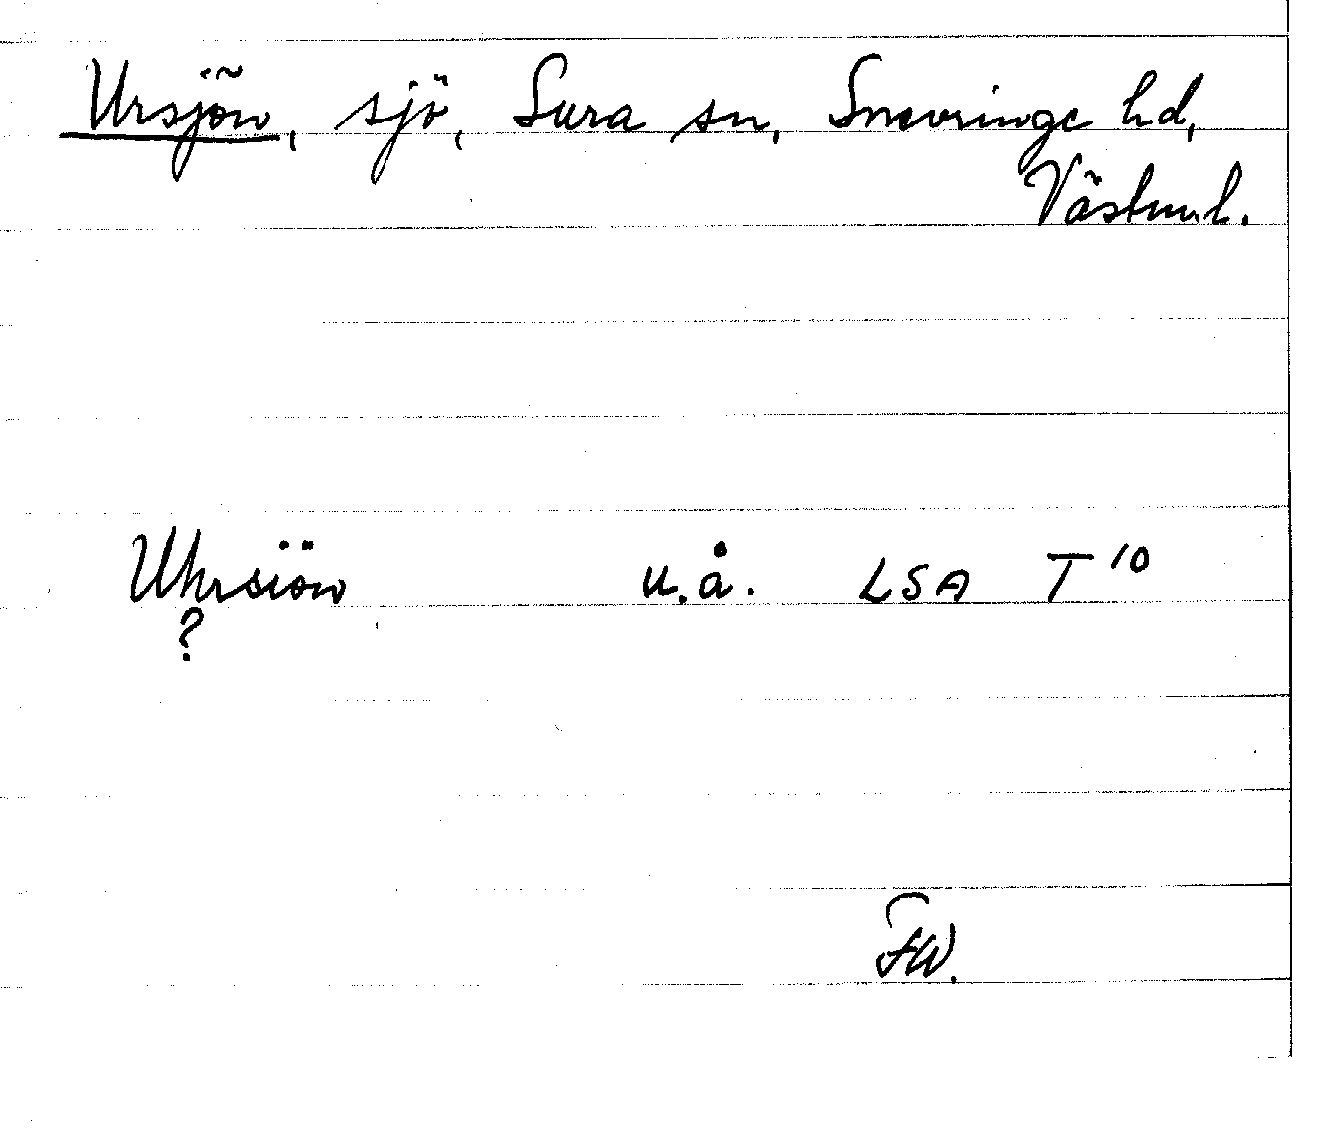 Ursjön, sjö, Sura sn, Snevringe hd,
Västml.
Uhrsiön u.å. LSA T10
?
FW.